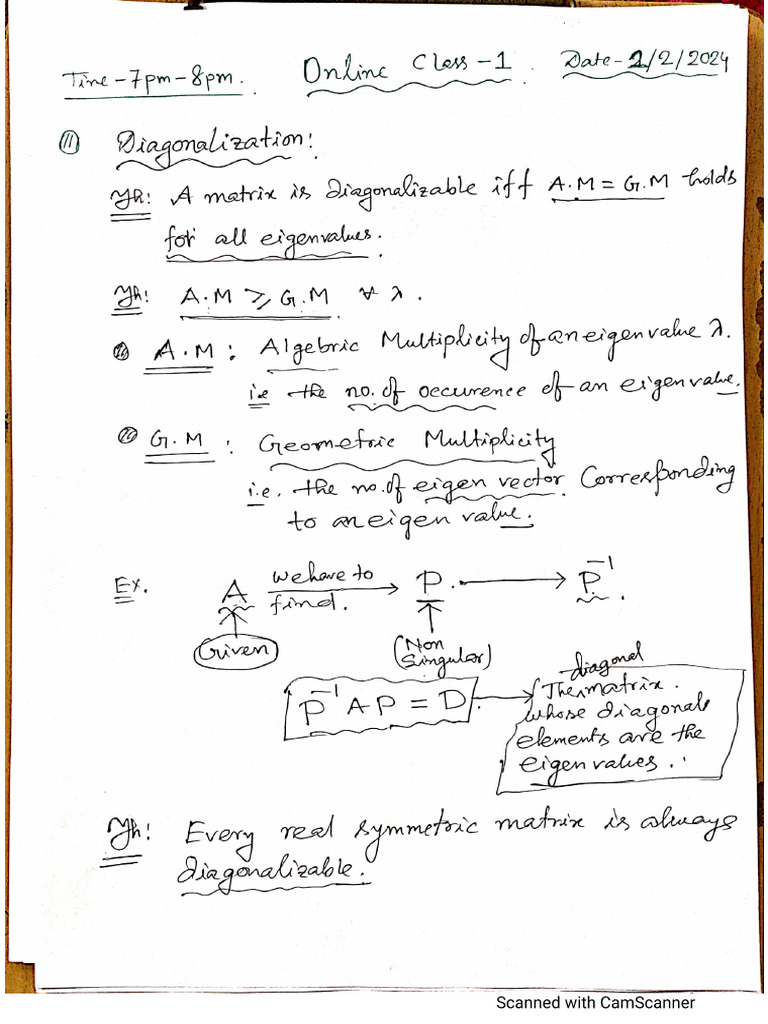 Time - 7pm - 8pm. Online Class - 1 Date - 2/2/2024
⑪ Diagonalization:
Th: A matrix is diagonalizable iff A.M = G.M holds
for all eigenvalues.
Th: A.M ≥ G.M ∀ λ.
A.M : Algebric Multiplicity of an eigenvalue λ.
i.e the no. of occurence of an eigenvalue.
G.M : Geometric Multiplicity
i.e. the no. of eigen vector Corresponding
to an eigen value.
Ex. A we have to find. → P. → P⁻¹.
(Given) (Non Singular)
P⁻¹AP = D. → The diagonal matrix.
whose diagonal
elements are the
eigen values.
Th: Every real symmetric matrix is always
diagonalizable.
Scanned with CamScanner